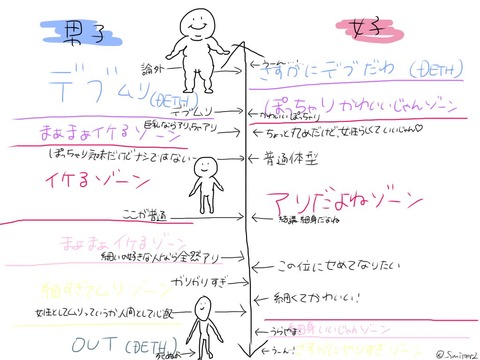 男子
女子
論外
うーん…
さすがにデブだわ(DETH)
デブムリ(DETH)
デブムリ
ぽっちゃりかわいいじゃんゾーン
かわいいぽっちゃり
巨乳ならアリっちゃアリ
まぁまぁイケるゾーン
ちょっと丸めだけど、女性らしくていいじゃん♡
ぽっちゃり気味だけどナシではない
普通体型
イケるゾーン
アリだよねゾーン
ここが普通
結構細身だよね
まぁまぁイケるゾーン
細いの好きな人なら全然アリ
この位にせめてなりたい
がりがりすぎ
細すぎてムリゾーン
細くてかわいい!
女性としてムリっていうか人間として心配
うらやま
細身いいじゃんゾーン
OUT(DETH)
死ぬぞ
うーん!
さすがにやりすぎゾーン